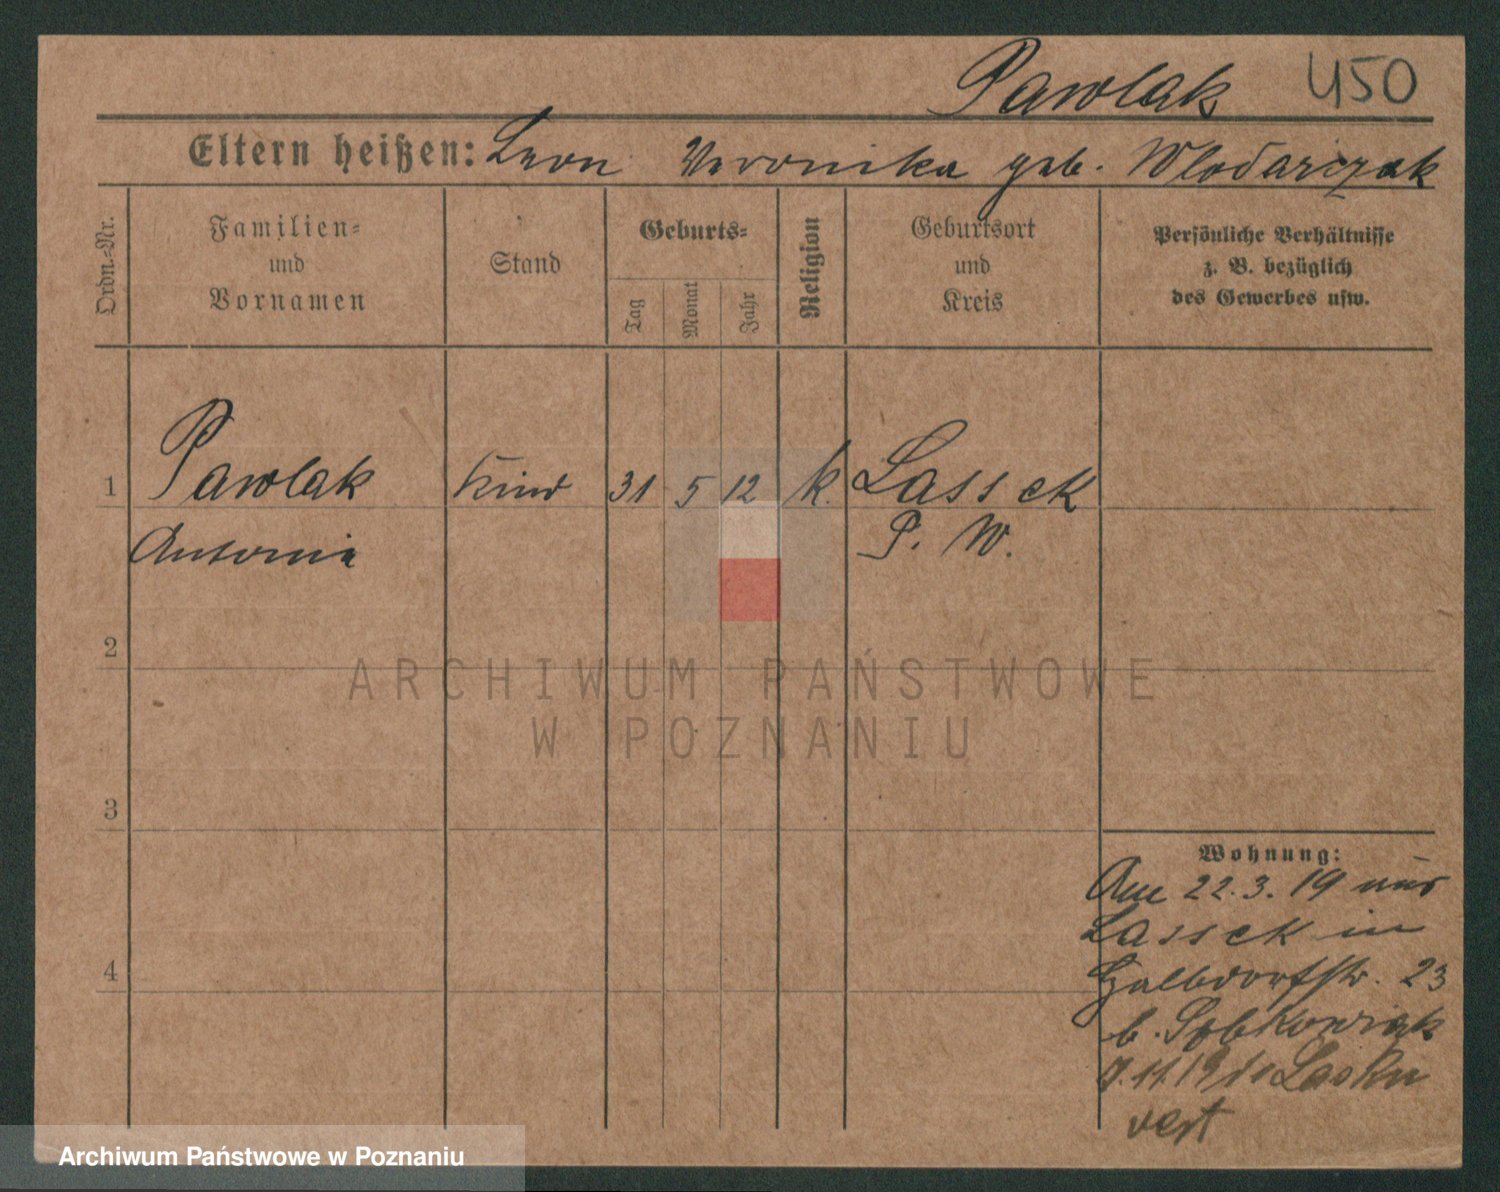 Pawlak 450
Eltern heißen: Leon Veronika geb. Wlodarczak
Ordn.-Nr.
Familien-
und
Vornamen
Stand
Geburts-
Tag
Monat
Jahr
Religion
Geburtsort
und
Kreis
Persönliche Verhältnisse
z. B. bezüglich
des Gewerbes usw.
1 Pawlak Kind 31 5 12 k. Lassek
Antonie P. W.
2
ARCHIWUM PAŃSTWOWE
W POZNANIU
3
4
Wohnung:
Am 22.3.19 aus
Lassek in
Halbdorfstr. 23
b. Sobkowiak
11.19 do Lasku
Archiwum Państwowe w Poznaniu